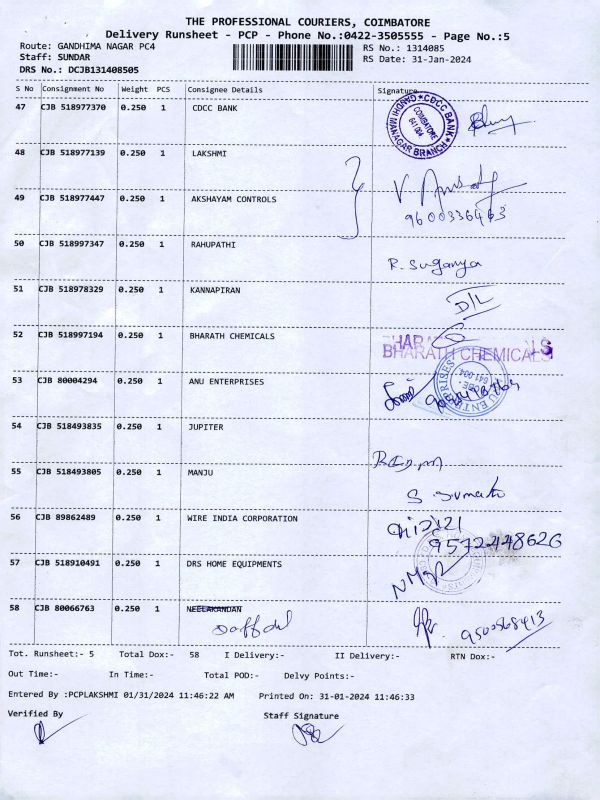 THE PROFESSIONAL COURIERS, COIMBATORE
Delivery Runsheet - PCP - Phone No.:0422-3505555 - Page No.:5
Route: GANDHIMA NAGAR PC4
RS No.: 1314085
Staff: SUNDAR
RS Date: 31-Jan-2024
DRS No.: DCJB131408505
S No Consignment No Weight PCS Consignee Details Signature
47 CJB 518977370 0.250 1 CDCC BANK
CDCC BANK GANDHI MANAGAR BRANCH COIMBATORE
48 CJB 518977139 0.250 1 LAKSHMI
49 CJB 518977447 0.250 1 AKSHAYAM CONTROLS
9600336463
50 CJB 518997347 0.250 1 RAHUPATHI
R. Suganya
51 CJB 518978329 0.250 1 KANNAPIRAN
D/L
52 CJB 518997194 0.250 1 BHARATH CHEMICALS
BHARATH CHEMICALS
53 CJB 80004294 0.250 1 ANU ENTERPRISES
54 CJB 518493835 0.250 1 JUPITER
55 CJB 518493805 0.250 1 MANJU
56 CJB 89862489 0.250 1 WIRE INDIA CORPORATION
9572448626
57 CJB 518910491 0.250 1 DRS HOME EQUIPMENTS
58 CJB 80066763 0.250 1 NEELAKANDAN
9500568413
Tot. Runsheet:- 5 Total Dox:- 58 I Delivery:- II Delivery:- RTN Dox:-
Out Time:- In Time:- Total POD:- Delvy Points:-
Entered By :PCPLAKSHMI 01/31/2024 11:46:22 AM Printed On: 31-01-2024 11:46:33
Verified By Staff Signature